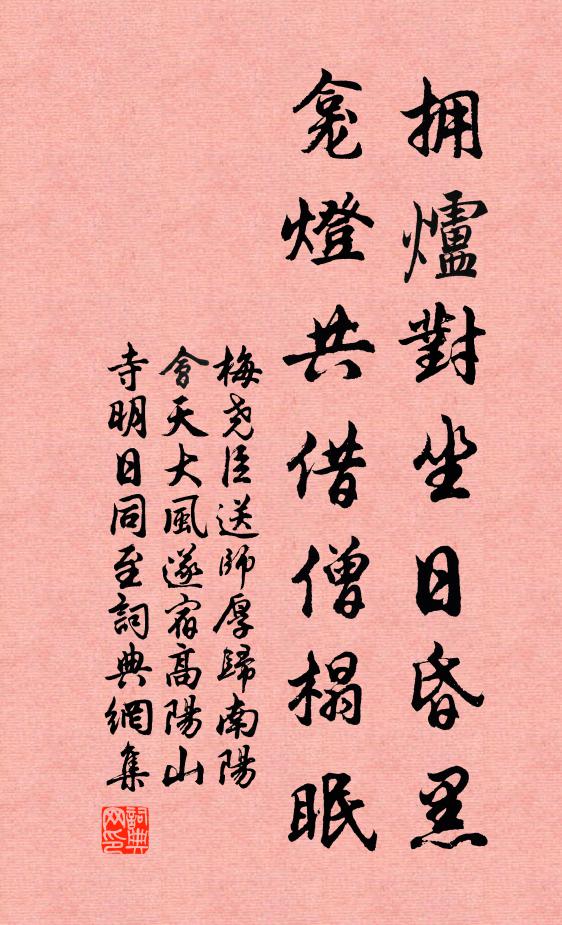 拥爐對坐日昏黑
龛燈共借僧榻眠
梅尧臣送師厚歸南陽
會天大風遂宿高陽山
寺明日同至詞典網集
詞典网印